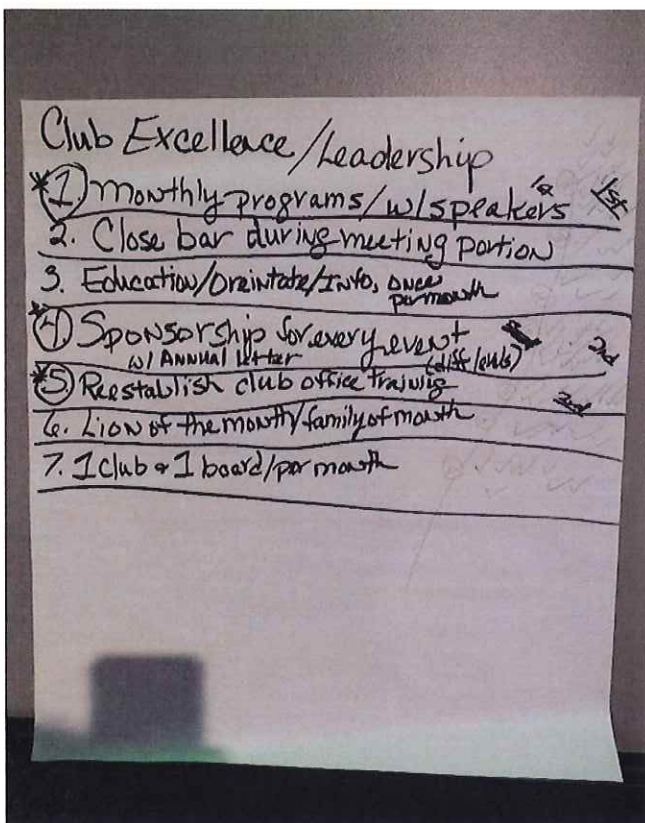 Club Excellence/Leadership
*1. Monthly programs/w/speakers 1st
2. Close bar during meeting portion
3. Education/Oreintate/Info, once
per month
*4 Sponsorship for every event 2nd
w/ Annual letter (diff levels)
*5 Reestablish club office training
6. Lion of the month/family of month
7. 1 club & 1 board/per month